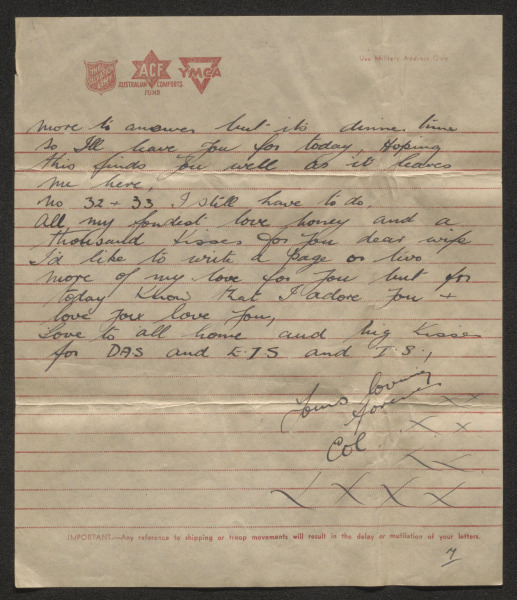 THE SALVATION ARMY
ACF
AUSTRALIAN COMFORTS FUND
YMCA
Use Military Address Only
more to answer but its dinner time
so I'll leave you for today, Hoping
this finds you well as it leaves
me here,
no 32 + 33 I still have to do.
All my fondest love honey and a
thousand kisses for you dear wife
I'd like to write a page or two
more of my love for you but for
today know that I adore you +
love you love you,
Love to all home and big kisses
for DAS and E.J.S and I.S.,
Yours loving
forever
Col
x x
x x
x x
x x x x
IMPORTANT.—Any reference to shipping or troop movements will result in the delay or mutilation of your letters.